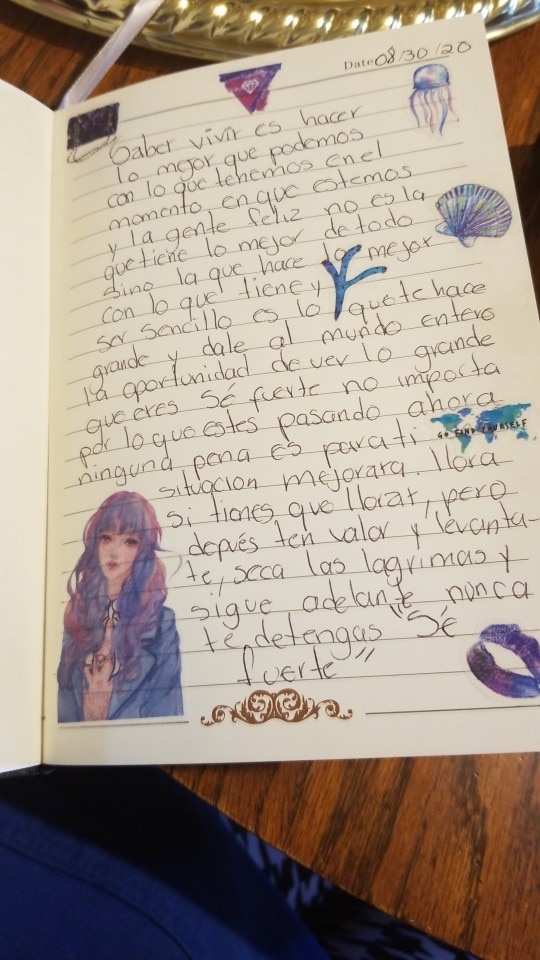 Date 08/30/20
Saber vivir es hacer
lo mejor que podemos
con lo que tenemos en el
momento en que estemos
y la gente feliz no es la
que tiene lo mejor de todo
sino la que hace lo mejor
con lo que tiene y
ser sencillo es lo que te hace
grande y dale al mundo entero
la oportunidad de ver lo grande
que eres Sé fuerte no importa
por lo que estes pasando ahora
ninguna pena es para ti
GO FIND YOURSELF
situacion mejorara. llora
si tienes que llorar, pero
depués ten valor y levanta-
te, seca las lagrimas y
sigue adelante nunca
te detengas "Sé
fuerte"